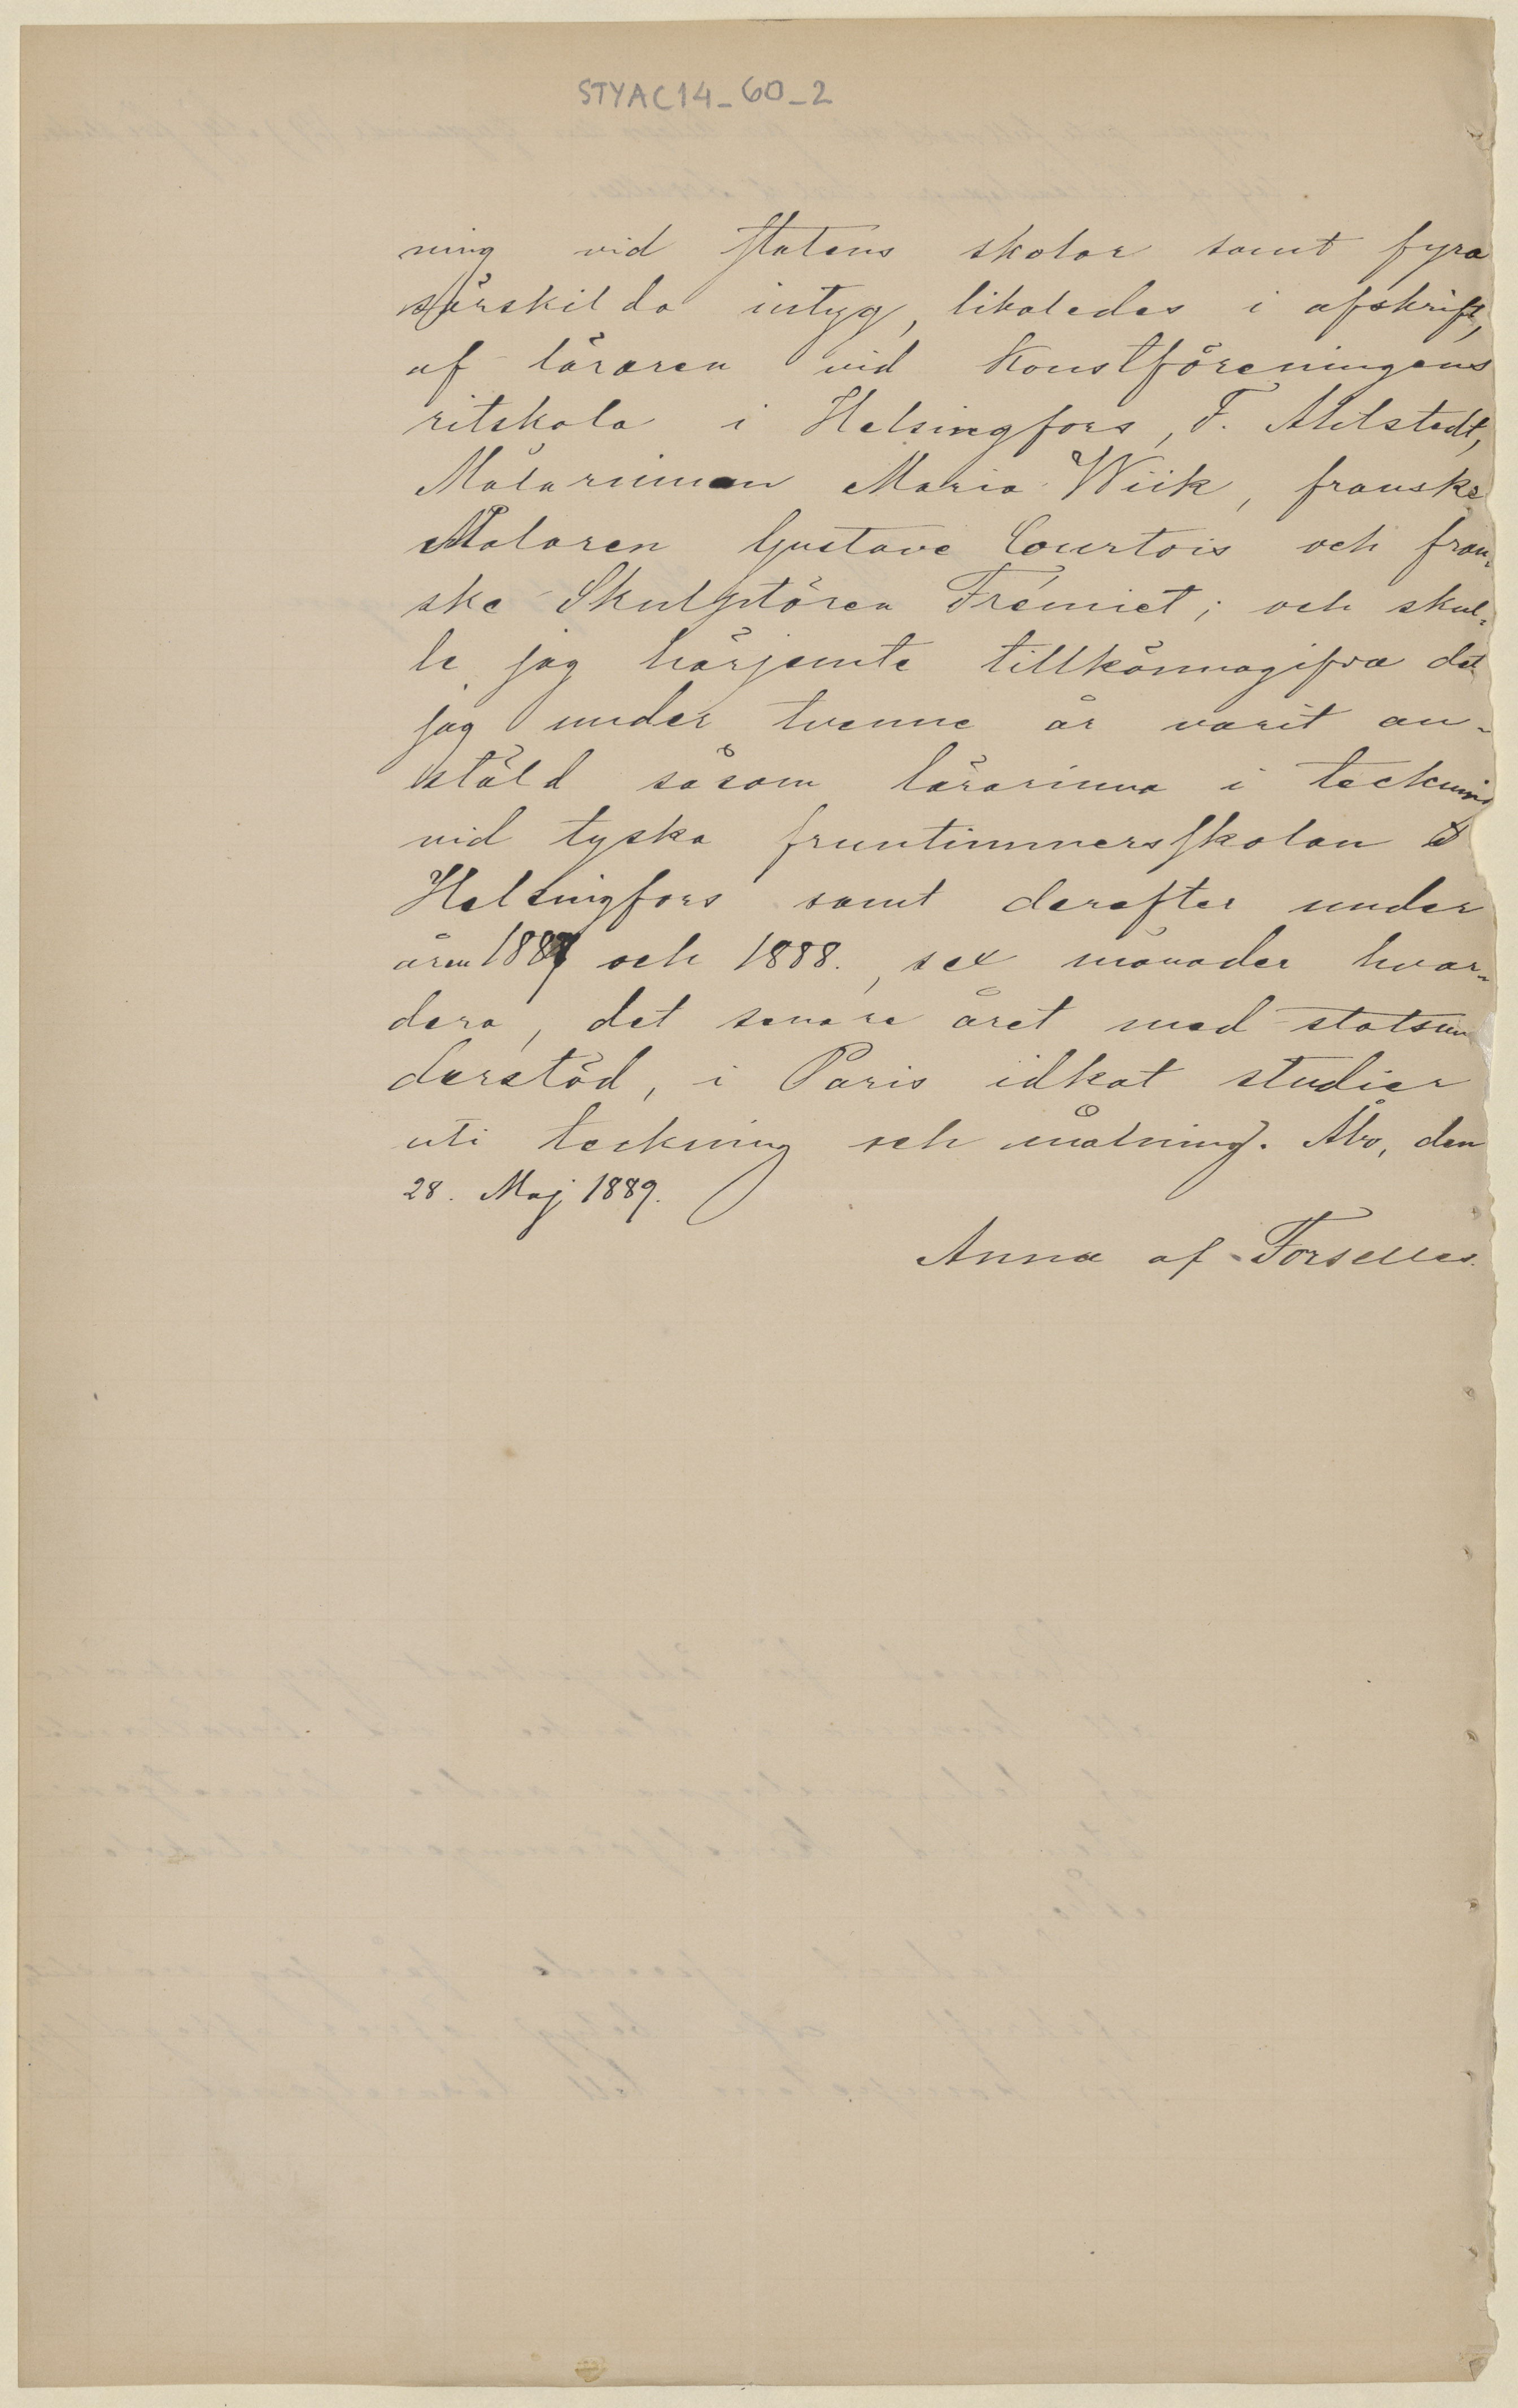 STYAC14_60_2
ning vid Statens skolor samt fyra
särskilda intyg, likaledes i afskrift,
af läraren vid Konstföreningens
ritskola i Helsingfors, F. Ahlstedt,
Målarinnan Maria Wiik, franske
Målaren Gustave Courtois och fran-
ske Skulptören Frémiet; och skul-
le jag härjemte tillkännagifva det
jag under tvenne år varit an-
stäld såsom lärarinna i teckning
vid tyska fruntimmersskolan i
Helsingfors samt derefter under
åren 1887 och 1888., sex månader hvar-
dera, det senare året med statsun
derstöd, i Paris idkat studier
uti teckning och målning. Åbo, den
28. Maj 1889.
Anna af Forselles.